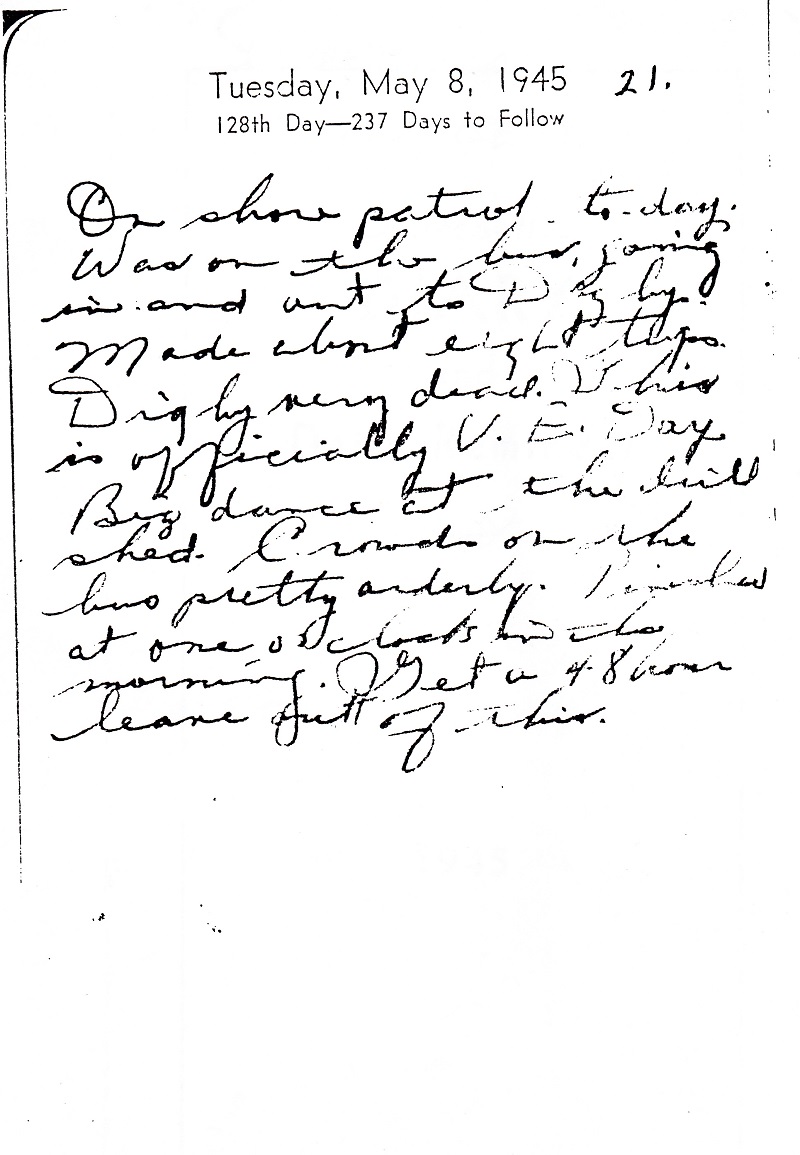 Tuesday, May 8, 1945 21.
128th Day—237 Days to Follow
On shore patrol to-day.
Was on the bus, going
in and out to Digby.
Made about eight trips.
Digby very dead. This
is officially V. E. Day
Big dance at the drill
shed. Crowds on the
bus pretty orderly. Finished
at one o'clock in the
morning. Get a 48 hour
leave out of this.